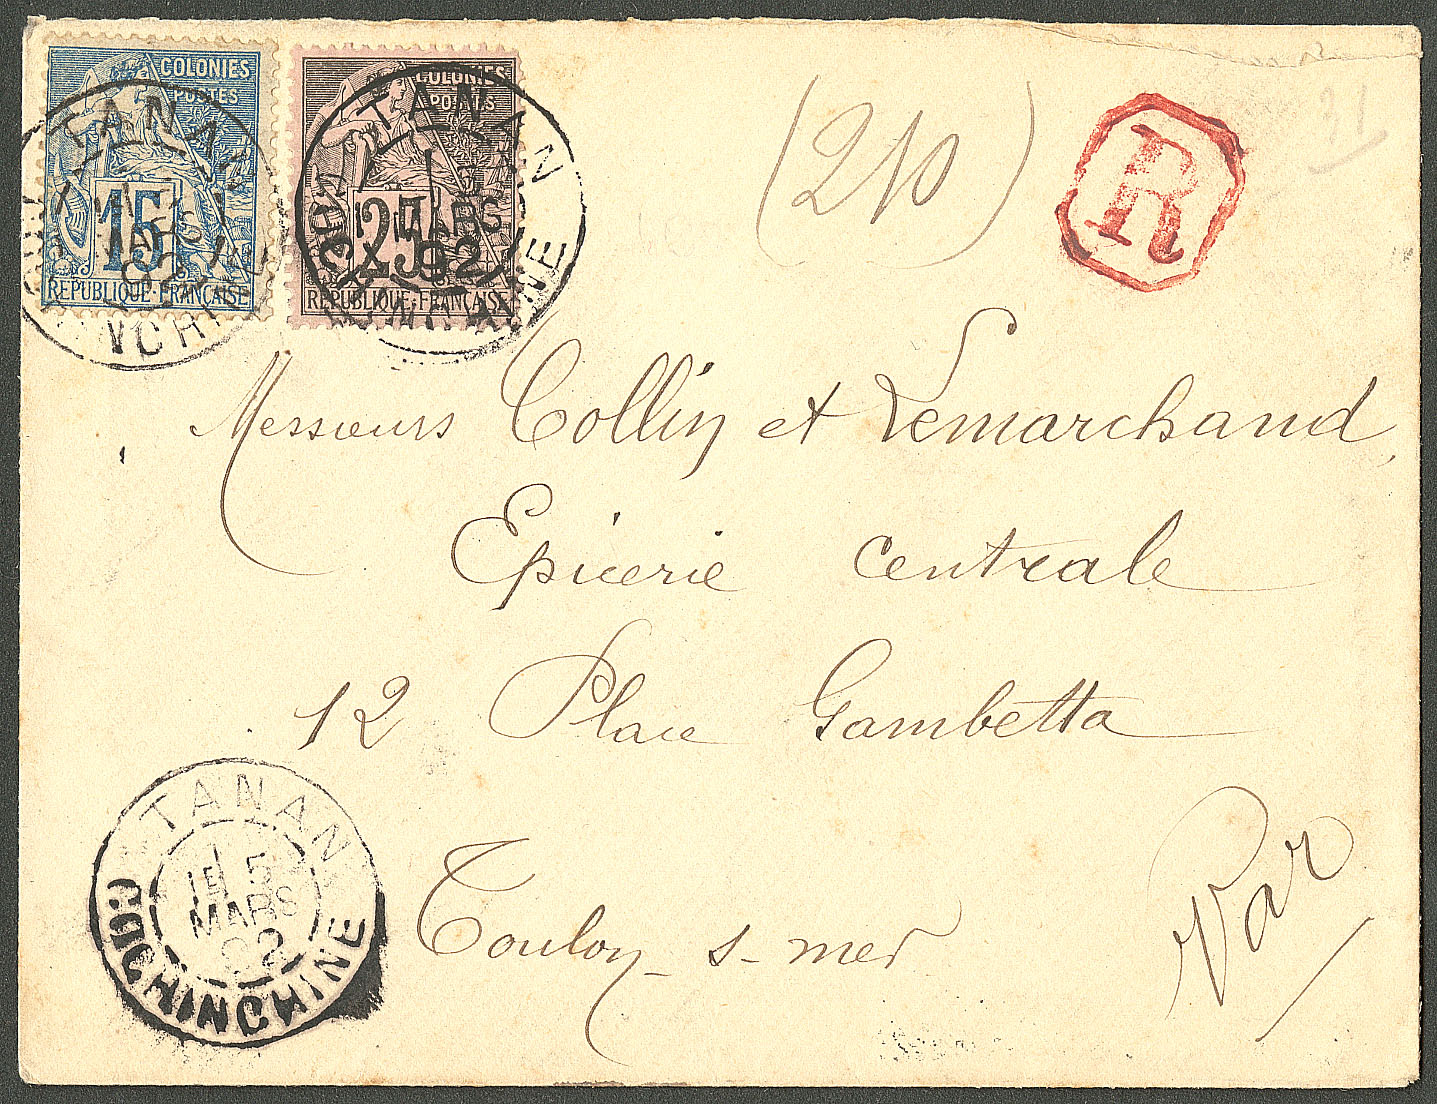 COLONIES
POSTES
15
REPUBLIQUE FRANÇAISE
TANAN
MARS
COLONIES
POSTES
25
REPUBLIQUE FRANÇAISE
TANAN
MARS
92
(210)
R
31
Messieurs Collin et Lemarchand,
Epicerie centrale
12 Place Gambetta
Toulon - s - mer
Var
TANAN
1E 5
MARS
92
COCHINCHINE